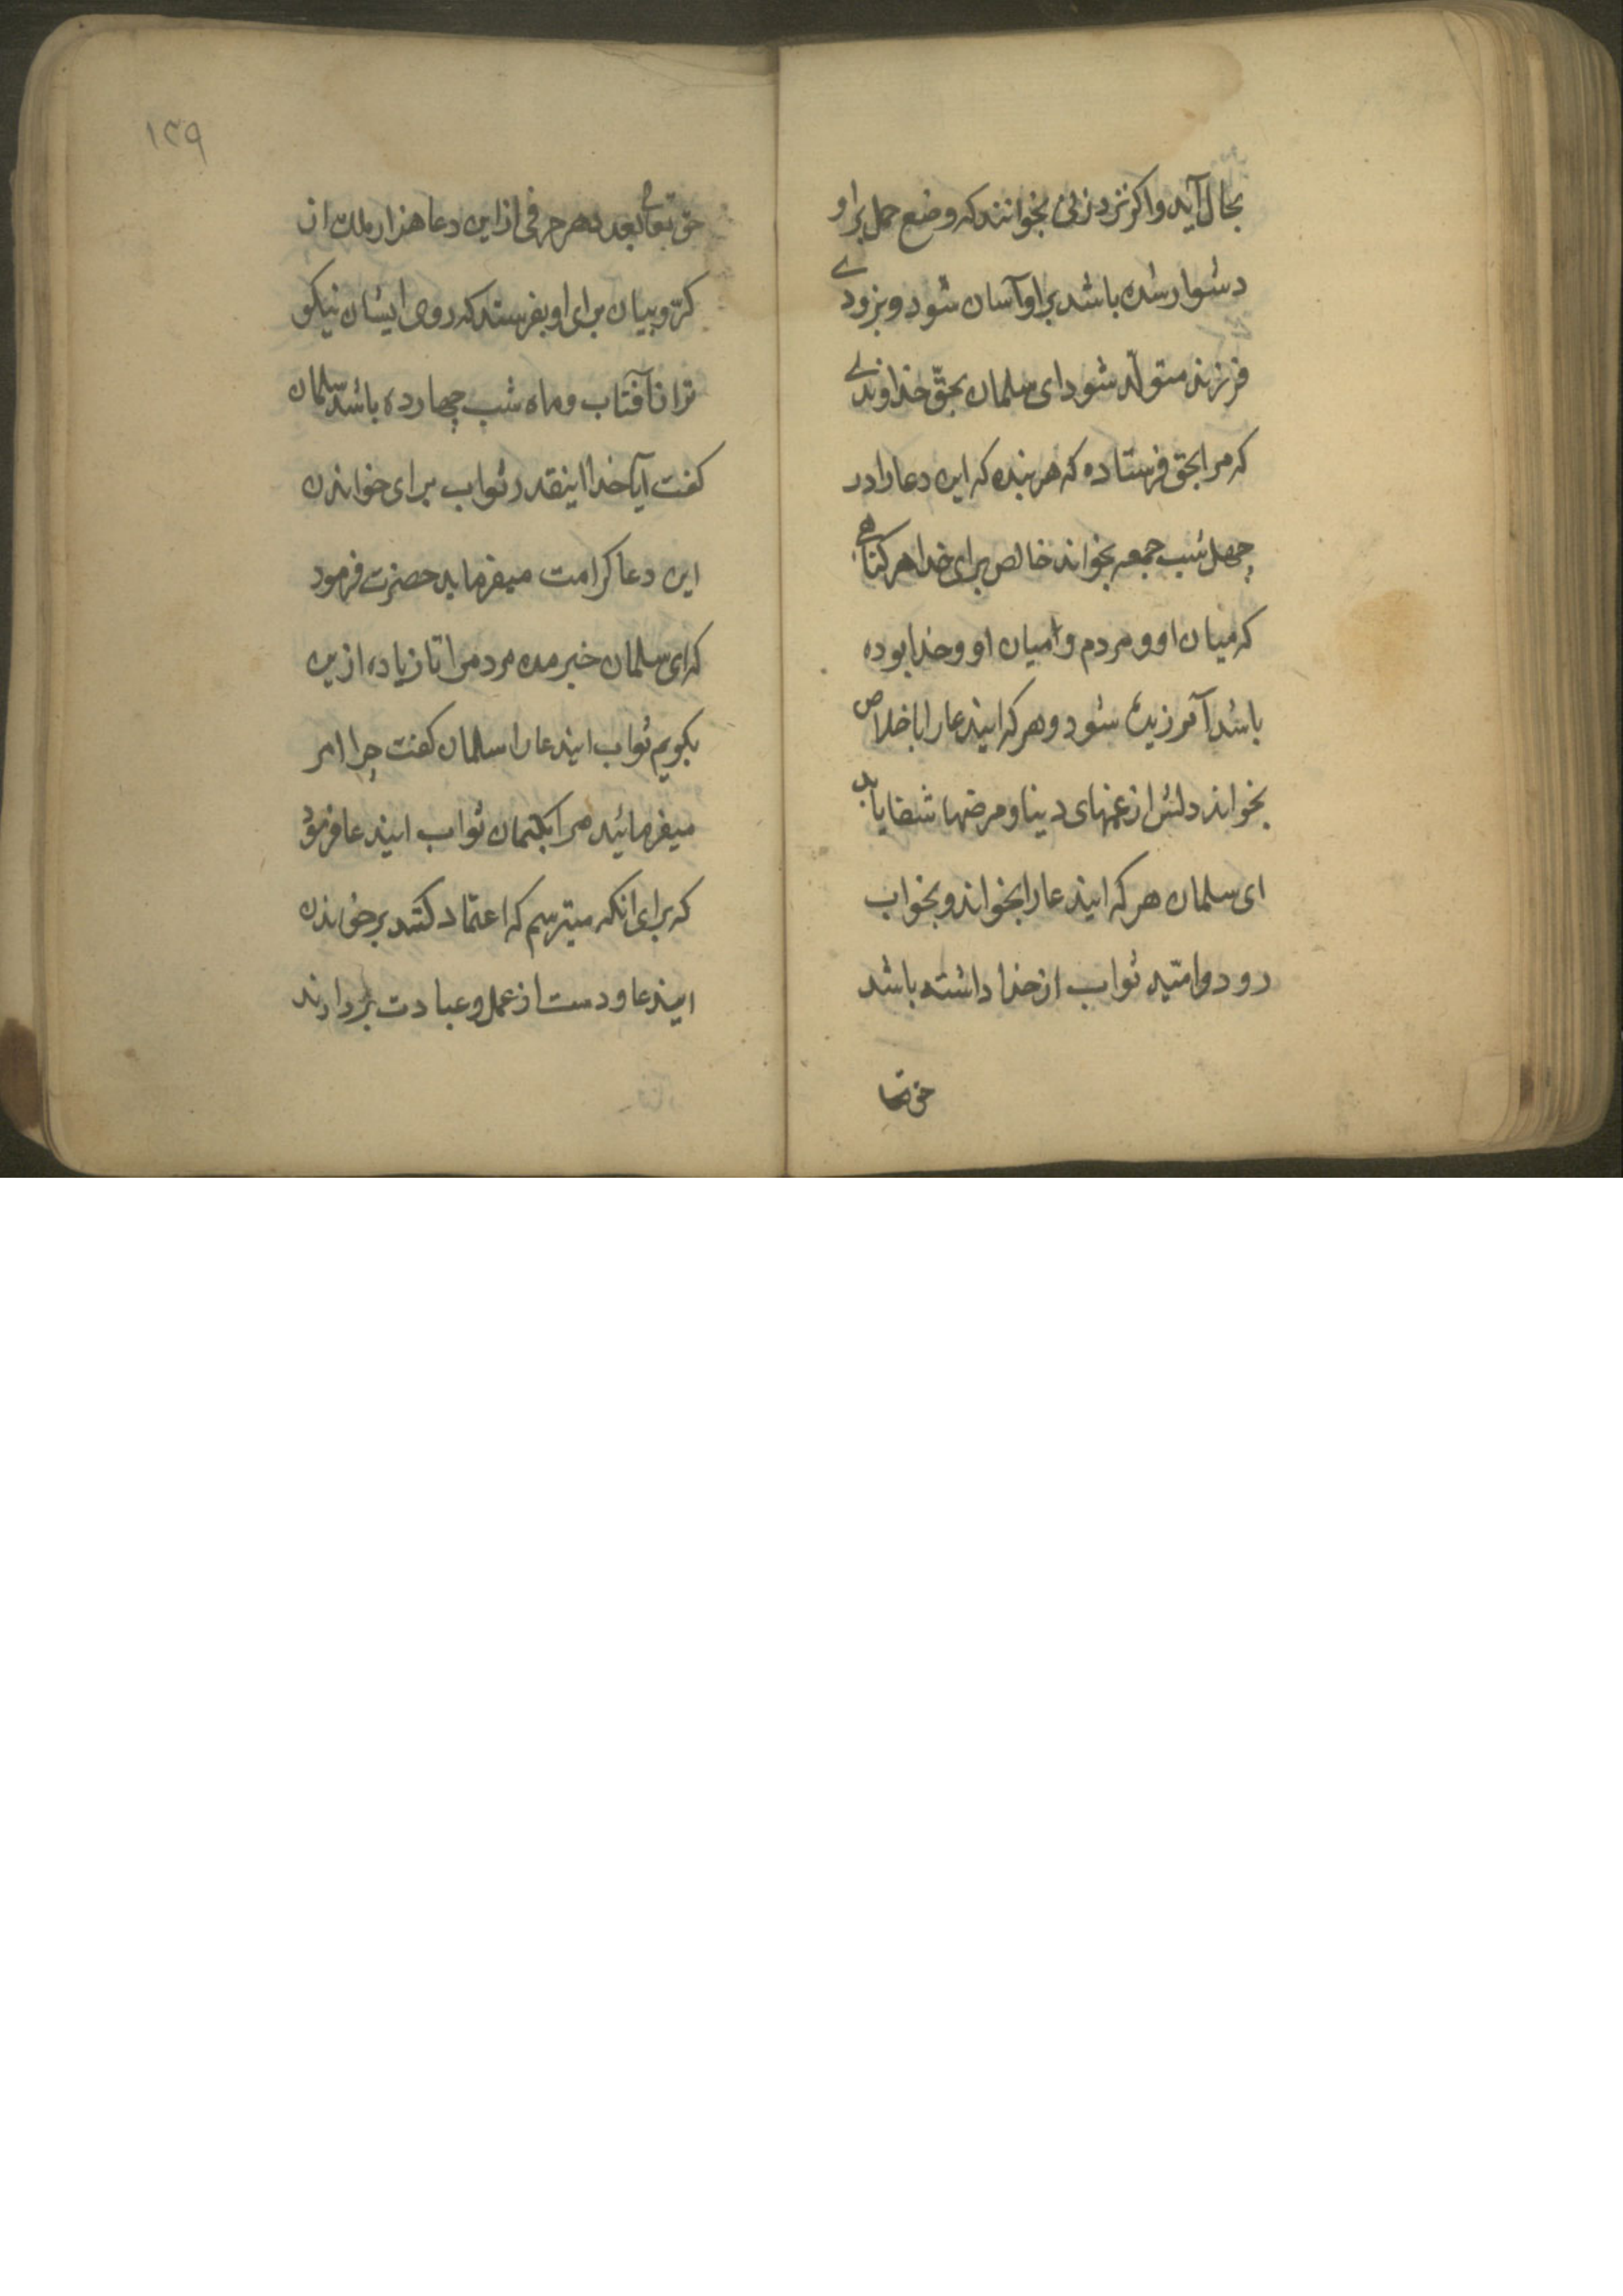 بحال آید و اکر نزد زنی بخوانند که وضع حمل بر او
دشوار شده باشد بر او آسان شود و بزودے
فرزند متولّد شود ای سلمان بحقّ خداوندے
که مرا بحق فرستاده که هر بنده که این دعا را در
چهل شب جمعه بخواند خالص برای خدا هر کناهے
که میان او و مردم و میان او و خدا بوده
باشد آمرزیده شود و هر که ایندعا را باخلاص
بخواند دلش از غمهای دنیا و مرضها شفا یابد
ای سلمان هر که ایندعا را بخواند و بخواب
رود و امّید ثواب از خدا داشته باشد
حق تعا
۱۲۹
حق تعالی بعدد هر حرفی از این دعا هزار ملک از
کرّوبیان برای او بفرستد که روی ایشان نیکو
تر از آفتاب و ماه شب چهارده باشد سلمان
کفت آیا خدا اینقدر ثواب برای خواندن
این دعا کرامت میفرماید حضرت فرمود
که ای سلمان خبر مده مردم را تا زیاده ازین
بکویم ثواب ایندعا را سلمان کفت چرا امر
میفرمائید مرا بکتمان ثواب ایندعا فرمود
که برای انکه میترسم که اعتماد کنند بر خواندن
ایندعا و دست از عمل و عبادت بردارند